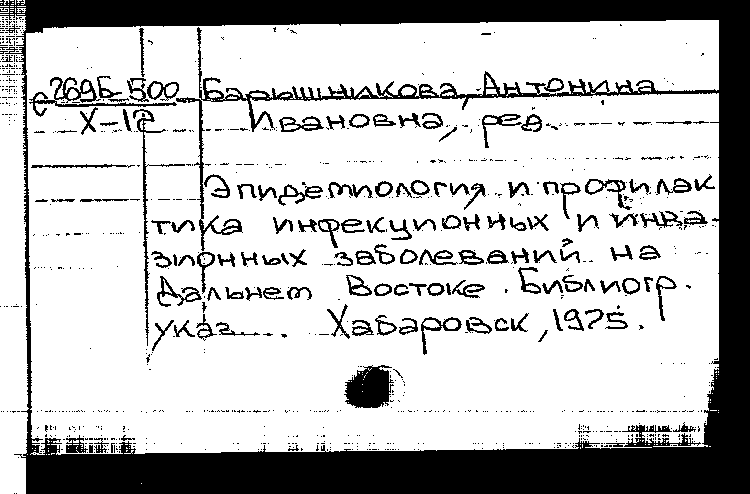 с 269Б-500 Барышникова, Антонина
X-12 Ивановна, ред.
Эпидемиология и профилак
тика инфекционных и инва-
зионных заболеваний на
Дальнем Востоке. Библиогр.
указ.... Хабаровск, 1975.